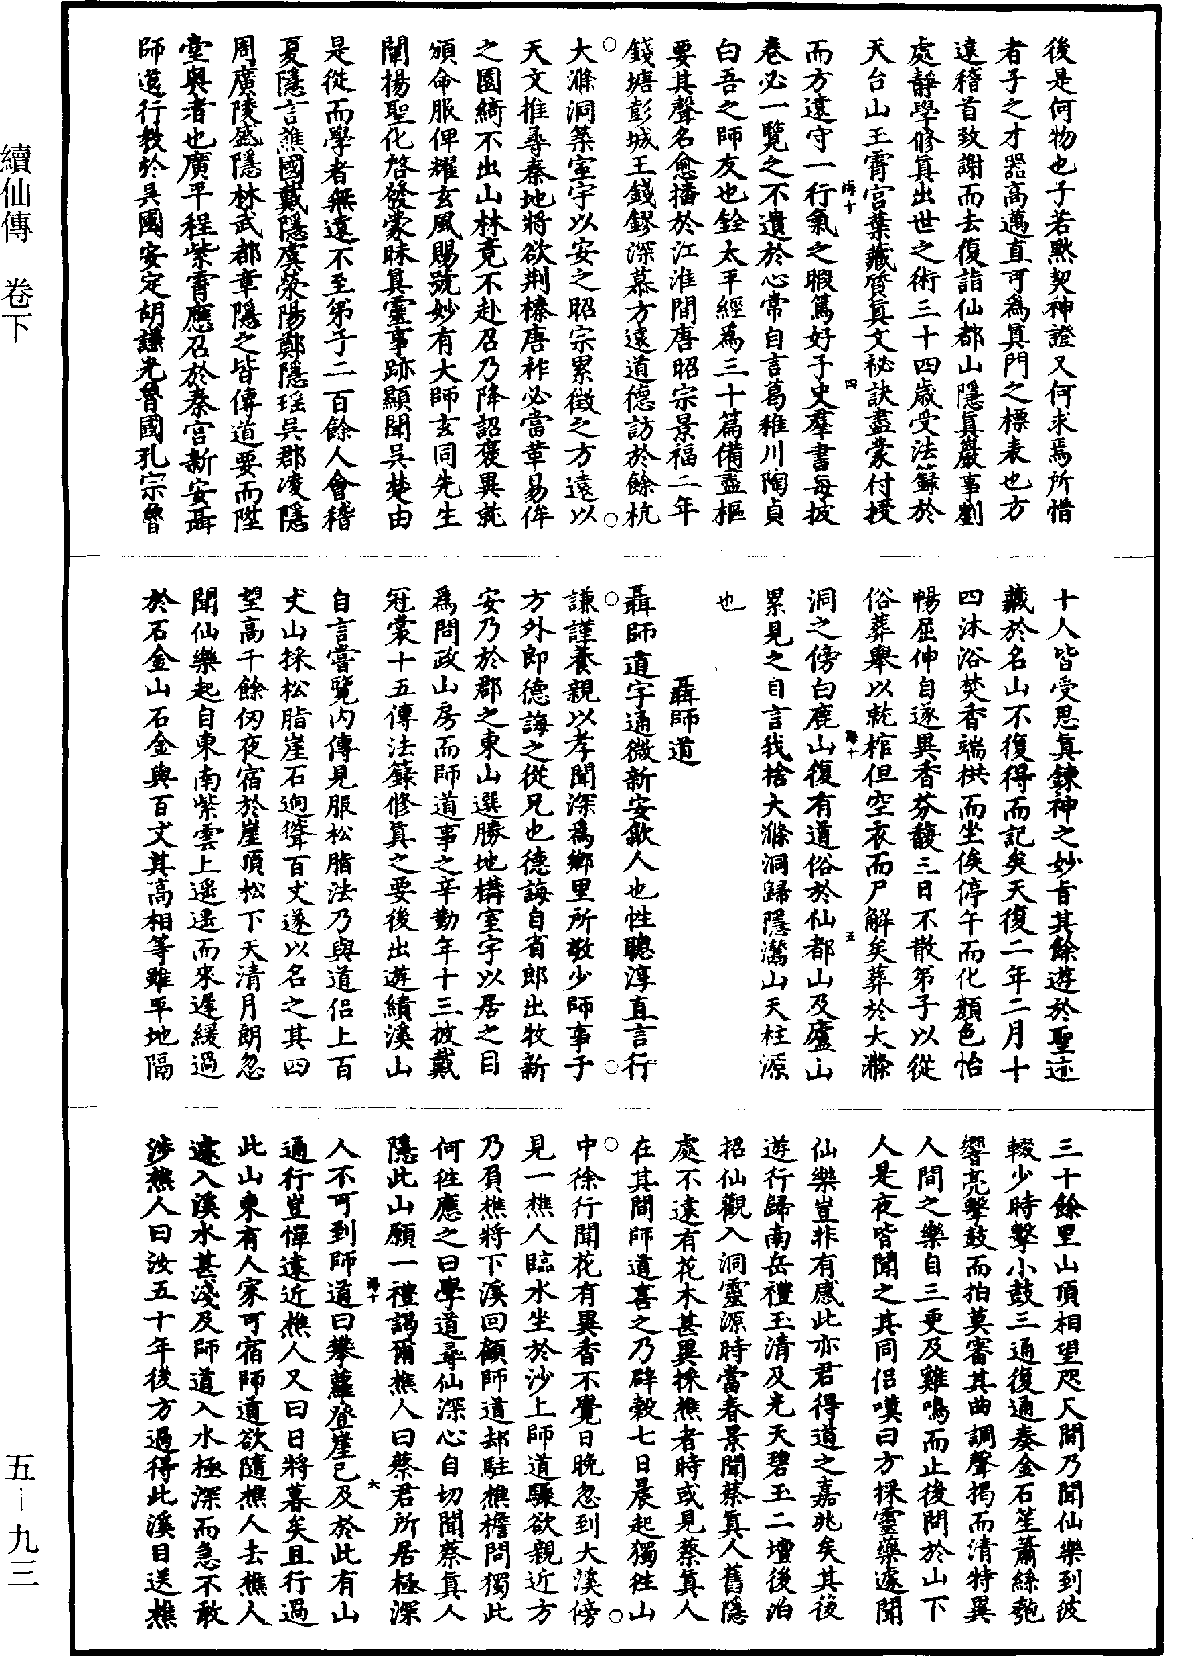 續仙傳 卷下
五—九三
後是何物也子若默契神證又何求焉所惜
者子之才器高邁直可為真門之標表也方
遠稽首致謝而去復詣仙都山隱真巖事劉
處靜學修真出世之術三十四歲受法籙於
天台山玉霄宮葉藏質真文祕訣盡蒙付授
而方遠守一行氣之暇篤好子史羣書每披
卷必一覽之不遺於心常自言葛稚川陶貞
白吾之師友也銓太平經為三十篇備盡樞
要其聲名愈播於江淮間唐昭宗景福二年
錢塘彭城王錢鏐深慕方遠道德訪於餘杭
大滌洞築室宇以安之昭宗累徵之方遠以
天文推尋秦地將欲荆榛唐祚必當革易侔
之園綺不出山林竟不赴召乃降詔褒異就
頒命服俾耀玄風賜號妙有大師玄同先生
闡揚聖化啓發蒙昧真靈事跡顯聞吳楚由
是從而學者無遠不至弟子二百餘人會稽
夏隱言譙國戴隱虞滎陽鄭隱瑤吳郡凌隱
周廣陵盛隱林武都章隱之皆傳道要而陞
堂奧者也廣平程紫霄應召於秦宮新安聶
師道行教於吳國安定胡謙光魯國孔宗魯
十人皆受思真鍊神之妙旨其餘遊於聖迹
藏於名山不復得而記矣天復二年二月十
四沐浴焚香端拱而坐俟停午而化顏色怡
暢屈伸自遂異香芬馥三日不散弟子以從
俗葬舉以就棺但空衣而尸解矣葬於大滌
洞之傍白鹿山復有道俗於仙都山及廬山
累見之自言我捨大滌洞歸隱灊山天柱源
也
聶師道
聶師道字通微新安歙人也性聰淳直言行
謙謹養親以孝聞深為鄉里所敬少師事于
方外即德誨之從兄也德誨自省郎出牧新
安乃於郡之東山選勝地構室宇以居之目
為問政山房而師道事之辛勤年十三披戴
冠裳十五傳法籙修真之要後出遊績溪山
自言嘗覽內傳見服松脂法乃與道侶上百
丈山採松脂崖石迥聳百丈遂以名之其四
望高千餘仞夜宿於崖頂松下天清月朗忽
聞仙樂起自東南紫雲上遙遙而來遲緩過
於石金山石金與百丈其高相等雖平地隔
三十餘里山頂相望咫尺間乃聞仙樂到彼
輟少時擊小鼓三通復通奏金石笙簫絲匏
響亮擊鼓而拍莫審其曲調聲揭而清特異
人間之樂自三更及雞鳴而止後問於山下
人是夜皆聞之其同侶嘆曰方採靈藥遽聞
仙樂豈非有感此亦君得道之嘉兆矣其後
遊行歸南岳禮玉清及光天碧玉二壇後泊
招仙觀入洞靈源時當春景聞蔡真人舊隱
處不遠有花木甚異採樵者時或見蔡真人
在其間師道喜之乃辟穀七日晨起獨往山
中徐行聞花有異香不覺日晚忽到大溪傍
見一樵人臨水坐於沙上師道驟欲親近方
乃負樵將下溪回顧師道却駐樵檐問獨此
何往應之曰學道尋仙深心自切聞蔡真人
隱此山願一禮謁爾樵人曰蔡君所居極深
人不可到師道曰攀蘿登崖已及於此有山
通行豈憚遠近樵人又曰日將暮矣且行過
此山東有人家可宿師道欲隨樵人去樵人
遽入溪水甚淺及師道入水極深而急不敢
涉樵人曰汝五十年後方過得此溪目送樵